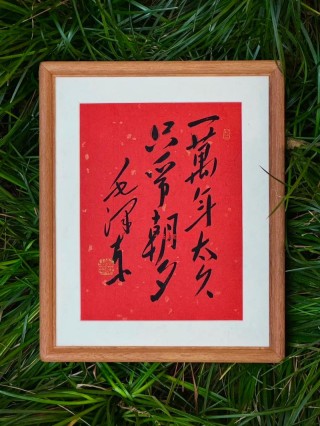 一萬年太久
只爭朝夕
毛澤東